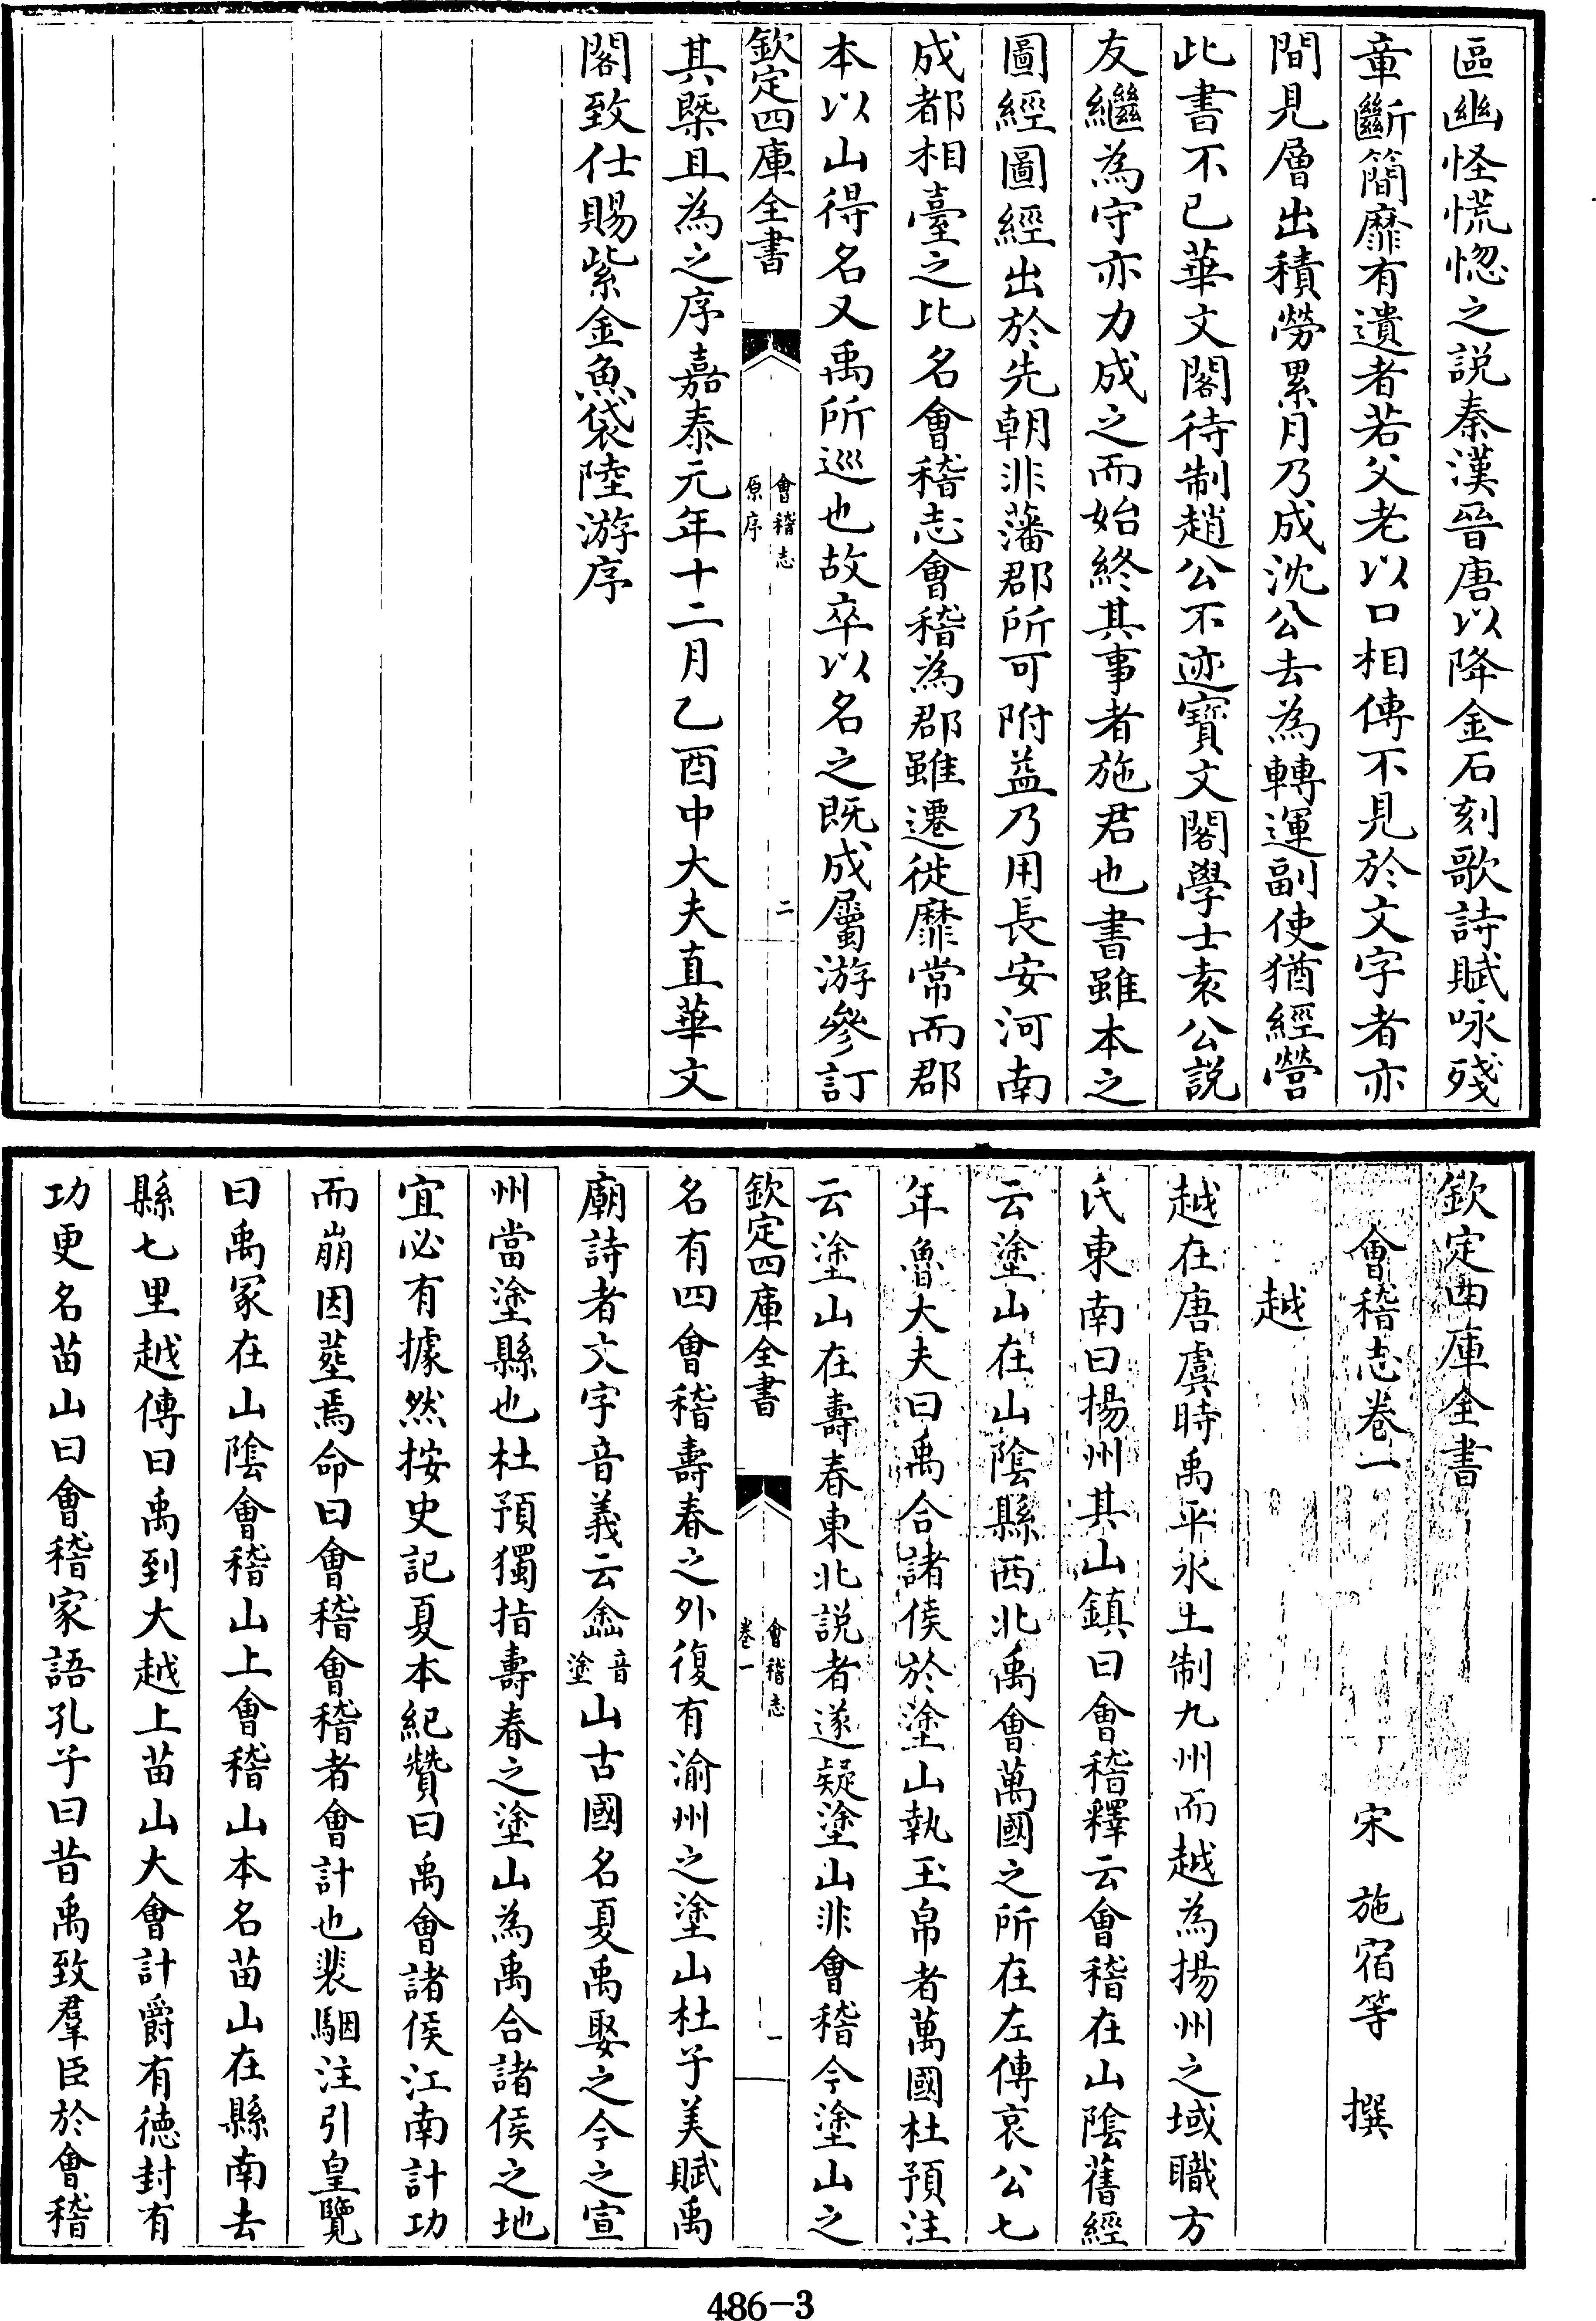 區幽怪慌惚之説秦漢晉唐以降金石刻歌詩賦咏殘
章斷簡靡有遺者若父老以口相傳不見於文字者亦
間見層出積勞累月乃成沈公去為轉運副使猶經營
此書不已華文閣待制趙公不迹寳文閣學士袁公説
友繼為守亦力成之而始終其事者施君也書雖本之
圖經圖經出於先朝非藩郡所可附益乃用長安河南
成都相臺之比名會稽志會稽為郡雖遷徙靡常而郡
本以山得名又禹所巡也故卒以名之既成屬游參訂
欽定四庫全書
會稽志
原序
二
其槩且為之序嘉泰元年十二月乙酉中大夫直華文
閣致仕賜紫金魚袋陸游序
欽定四庫全書
會稽志卷一
宋 施宿等 撰
越
越在唐虞時禹平水土制九州而越為揚州之域職方
氏東南曰揚州其山鎮曰會稽釋云會稽在山隂舊經
云塗山在山隂縣西北禹會萬國之所在左傳哀公七
年魯大夫曰禹合諸侯於塗山執玉帛者萬國杜預注
云塗山在壽春東北説者遂疑塗山非會稽今塗山之
欽定四庫全書
會稽志
卷一
一
名有四會稽壽春之外復有渝州之塗山杜子美賦禹
廟詩者文字音義云嵞音塗山古國名夏禹娶之今之宣
州當塗縣也杜預獨指壽春之塗山為禹合諸侯之地
宜必有據然按史記夏本紀贊曰禹會諸侯江南計功
而崩因塟焉命曰會稽會稽者會計也裴駰注引皇覽
曰禹冢在山隂會稽山上會稽山本名苗山在縣南去
縣七里越傳曰禹到大越上苗山大會計爵有徳封有
功更名苗山曰會稽家語孔子曰昔禹致羣臣於會稽
486-3